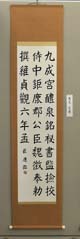 九成宮醴泉銘秘書監撿挍
侍中鉅鹿郡公臣魏徵奉勅
撰維貞觀六年孟